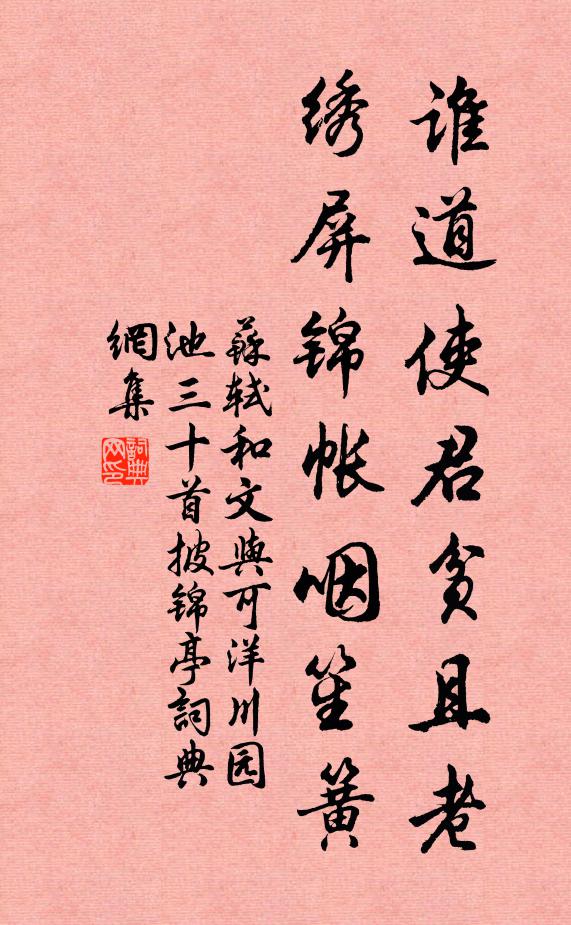 谁道使君贫且老
绣屏锦帐咽笙簧
蘇轼和文與可洋川园
池三十首披锦亭詞典
網集
詞典
网印